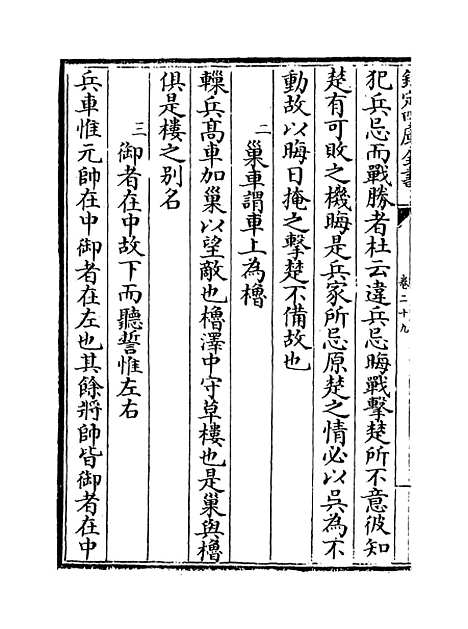 欽定四庫全書
卷二十九
犯兵忌而戰勝者杜云違兵忌晦戰擊楚所不意彼知
楚有可敗之機晦是兵家所忌原楚之情必以吳為不
動故以晦日掩之擊楚不備故也
二 巢車謂車上為櫓
轈兵高車加巢以望敵也櫓澤中守草樓也是巢與櫓
俱是樓之别名
三 御者在中故下而聽誓惟左右
兵車惟元帥在中御者在左也其餘將帥皆御者在中